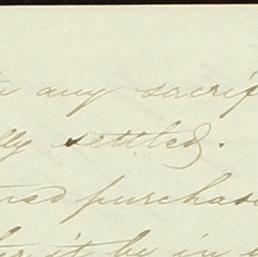 any sacrif
lly settled.
purchas
it be in